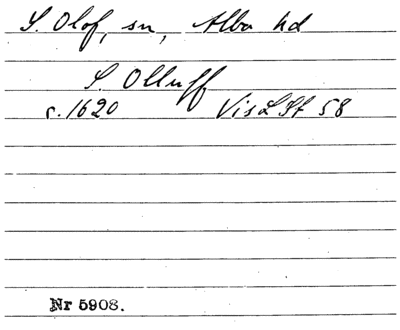 S. Olof, sn, Albo hd
S. Olluff
c. 1620 VisLSt 58
Nr 5908.